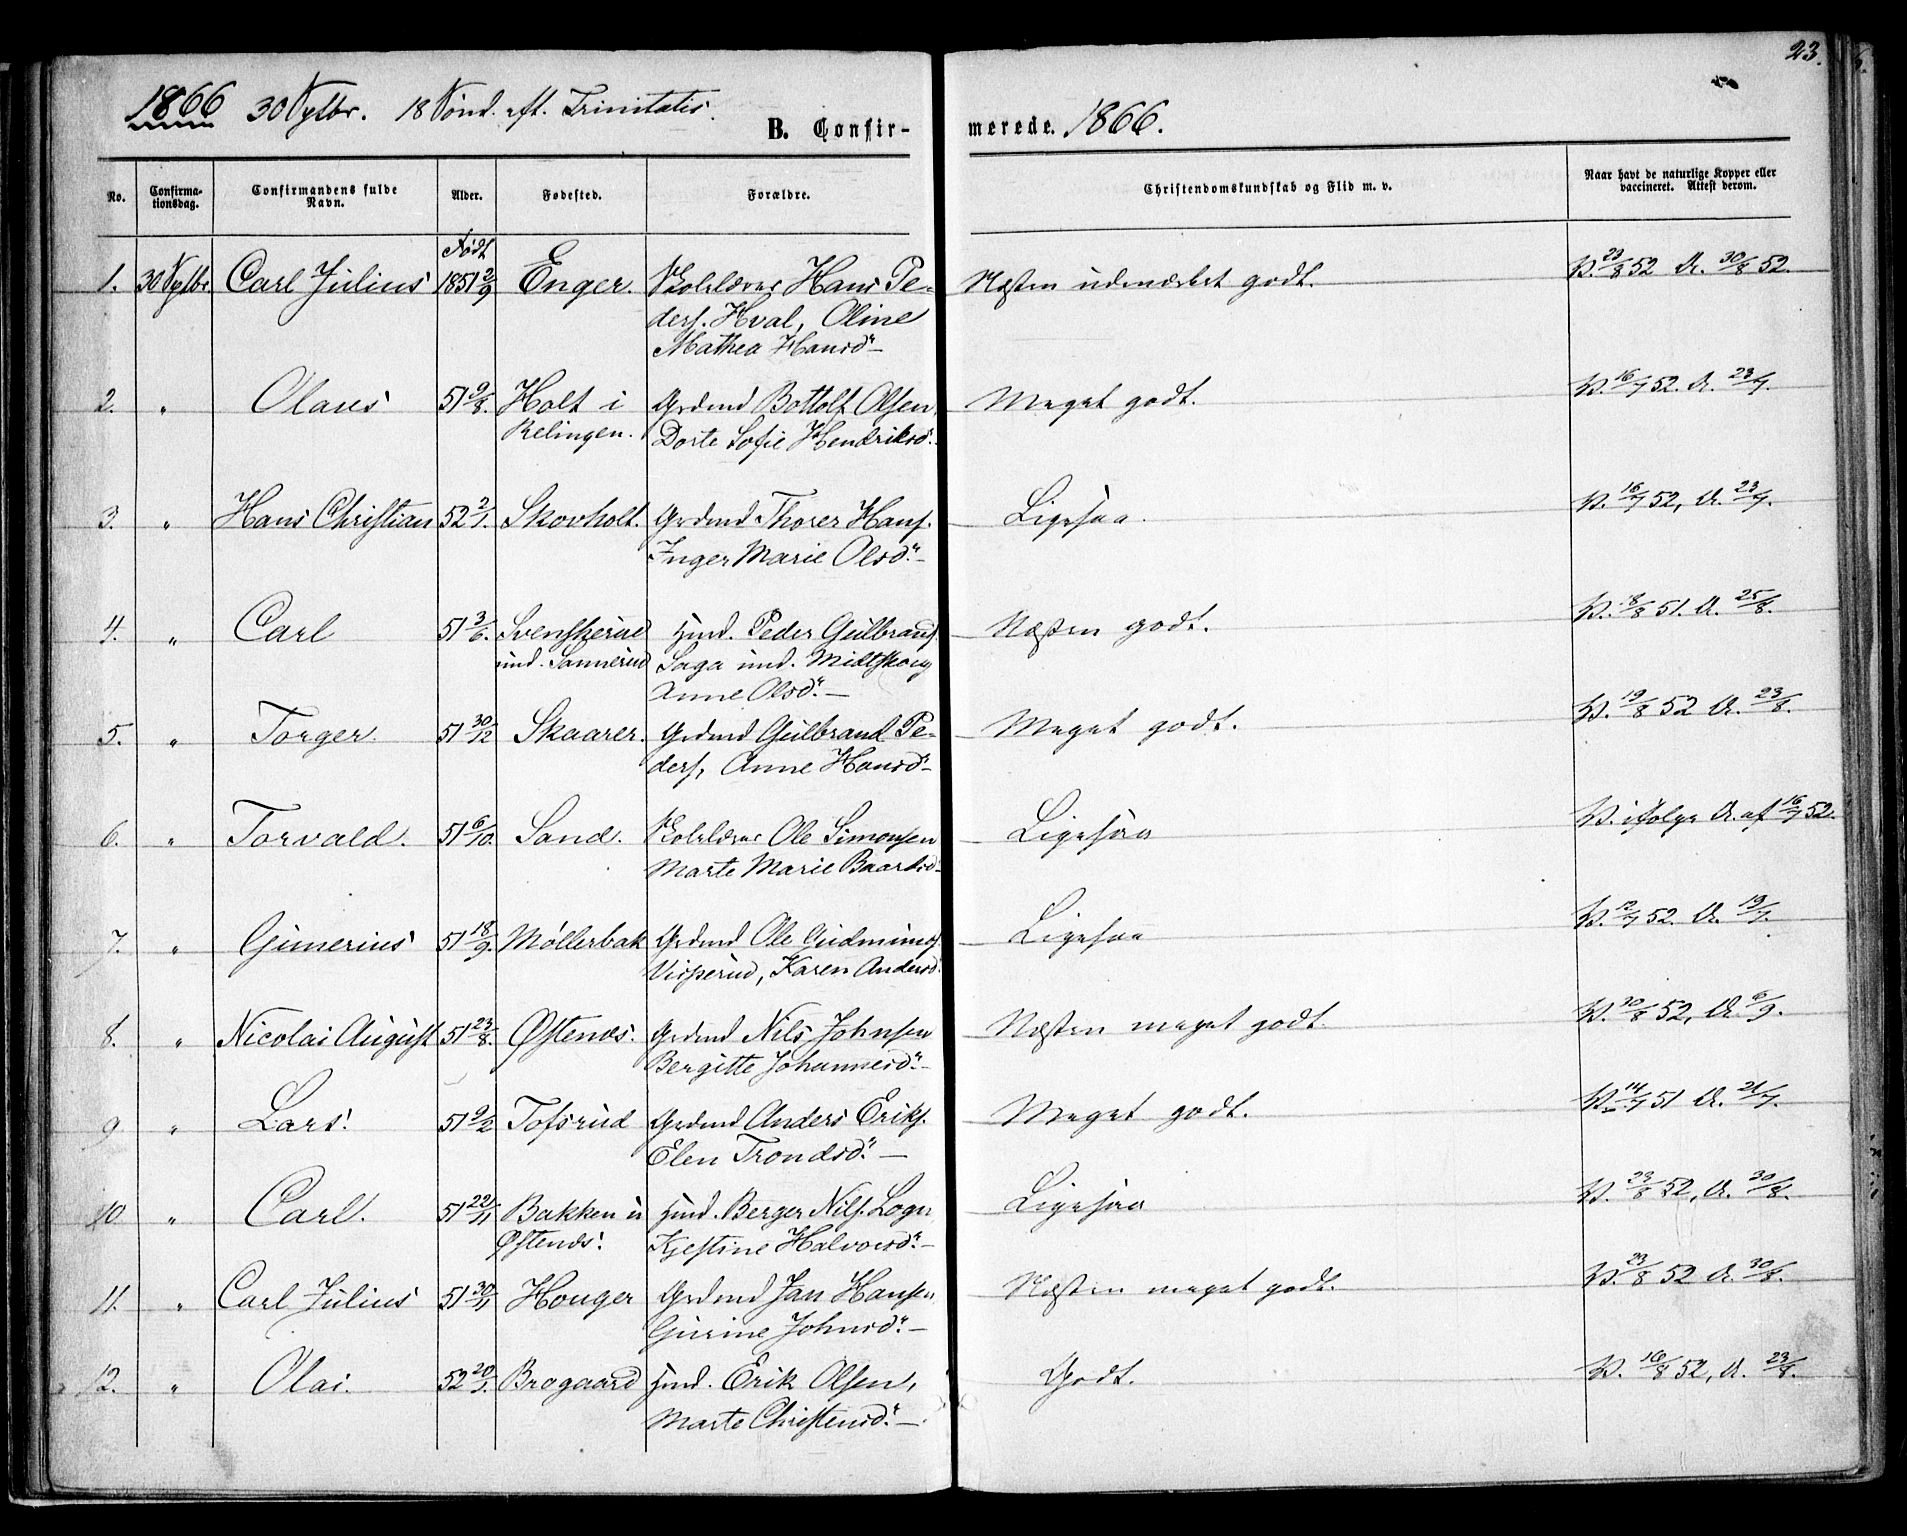 23.
1866 30 Septbr. 18 Sönd. eft. Trinitatis.
B. Confir-
merede. 1866.
No.
Confirma-
tionsdag.
Confirmandens fulde
Navn.
Alder.
Fødested.
Forældre.
Christendomskundskab og Flid m. v.
Naar havt de naturlige Kopper eller
vaccineret. Attest derom.
Født
1. 30 Septbr Carl Julius 1851 2/9 Enger. Skolelærer Hans Pe- Næsten udmærket godt. V. 23/8 52 A. 30/8 52.
ders. Hval, Oline
Mathea Hansd.
2. " Olaus 51 9/8. Holt i Grdmd Bottolf Olsen, Meget godt. V. 16/7 52. A. 23/7.
Relingen. Dorte Sofie Hendriksd.
3. " Hans Christian 52 2/1. Skovholt. Grdmd Thorer Hans. Ligesaa. V. 16/7 52, A. 23/7.
Inger Marie Olsd. —
4. " Carl 51 3/6. Svenskerud Hmd. Peder Gulbrands. Næsten godt. V. 18/8 51. A. 25/8.
und. Sannerud Saga und. Midtskog
Anne Olsd. —
5. " Torger. 51 30/12 Skaarer. Grdmd Gulbrand Pe- Meget godt. V. 19/8 52 A. 23/8.
ders, Anne Hansd. —
6. " Torvald. 51 6/10. Sand. Skolelærer Ole Simonsen Ligesaa V. ifølge A. af 16/7 52.
Marte Marie Baardsd. —
7. " Gunerius 51 18/9. Møllerbak Grdmd Ole Gudmunds. Ligesaa V. 12/7 52. A. 19/7.
Visperud, Karen Andersd.
8. " Nicolai August 51 23/8. Østenes. Grdmd Nils Johnsen Næsten meget godt. V. 30/8 52, A. 6/9.
Bergitte Johannesd. —
9 " Lars. 51 9/2 Tofsrud Grdmd Anders Eriks. Meget godt. V. 14/7 51 A. 21/7.
Elen Trondsd. —
10 " Carl. 51 22/11 Bakken u Hmd. Berger Nils. Logn Ligesaa V. 23/8 52, A. 30/8.
Østenes. Kjestine Halvorsd. —
11. " Carl Julius 51 30/11 Houger Grdmd Jan Hansen, Næsten meget godt. V. 23/8 52 A. 30/8.
Gurine Johnsd. —
12. " Olai. 52 20/1. Brogaard Hmd. Erik Olsen, Godt. V. 16/8 52, A. 23/8.
Marte Christensd. —